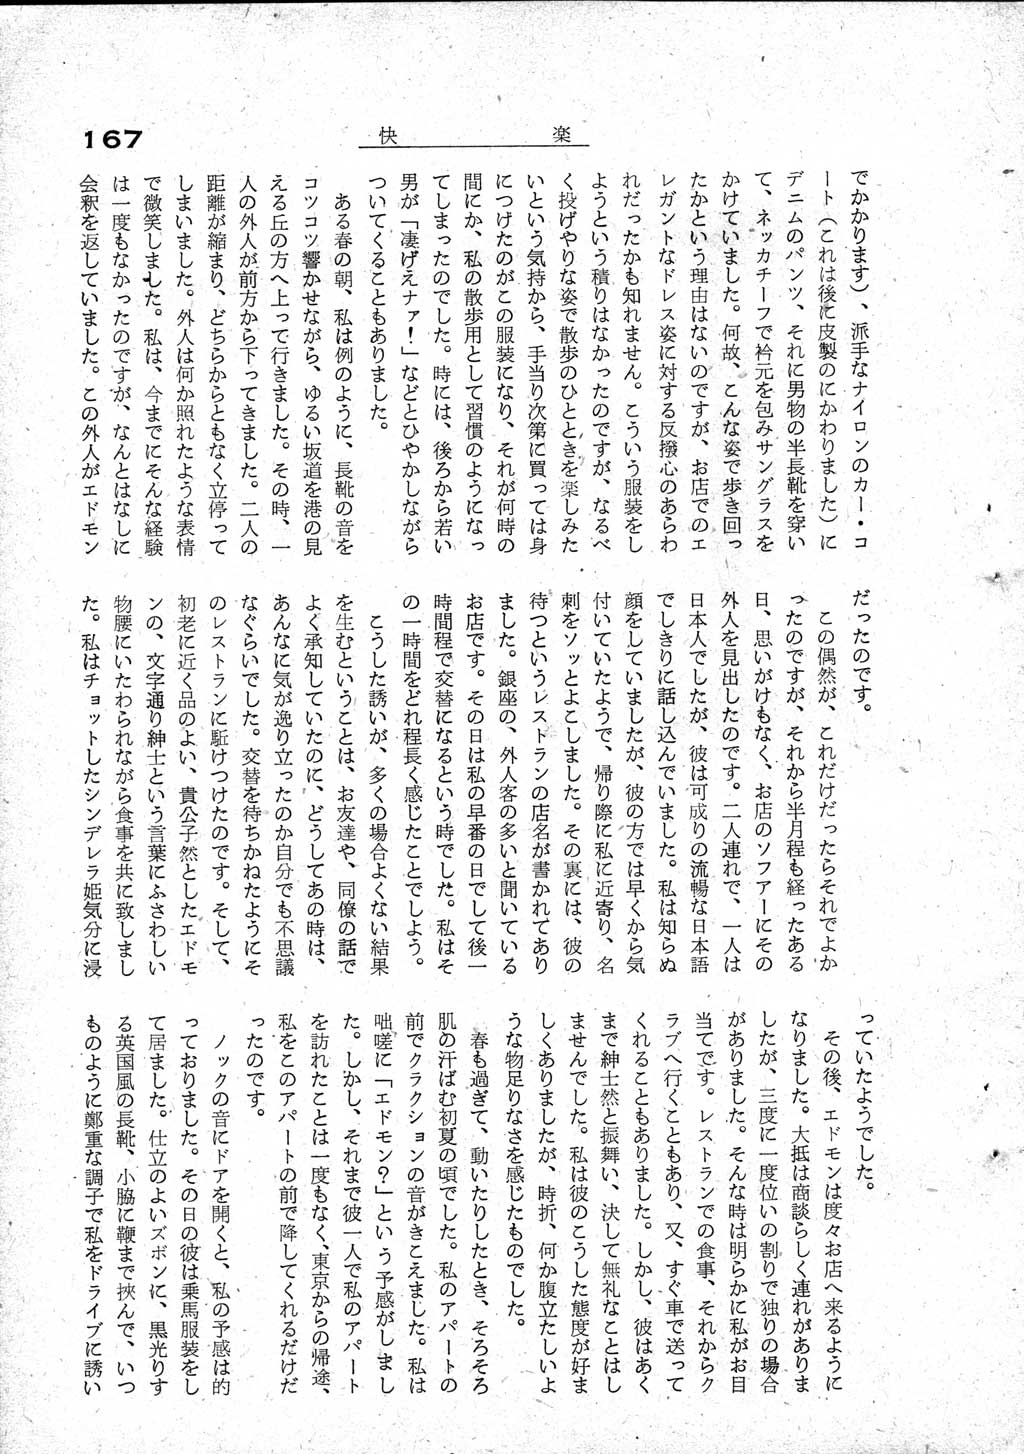 167
快楽
でかかります)、派手なナイロンのカー・コ
ート(これは後に皮製のにかわりました)に
デニムのパンツ、それに男物の半長靴を穿い
て、ネッカチーフで衿元を包みサングラスを
かけていました。何故、こんな姿で歩き回っ
たかという理由はないのですが、お店でのエ
レガントなドレス姿に対する反撥心のあらわ
れだったかも知れません。こういう服装をし
ようという積りはなかったのですが、なるべ
く投げやりな姿で散歩のひとときを楽しみた
いという気持から、手当り次第に買っては身
につけたのがこの服装になり、それが何時の
間にか、私の散歩用として習慣のようになっ
てしまったのでした。時には、後ろから若い
男が「凄げえナァ!」などとひやかしながら
ついてくることもありました。
ある春の朝、私は例のように、長靴の音を
コツコツ響かせながら、ゆるい坂道を港の見
える丘の方へ上って行きました。その時、一
人の外人が前方から下ってきました。二人の
距離が縮まり、どちらからともなく立停って
しまいました。外人は何か照れたような表情
で微笑しました。私は、今までにそんな経験
は一度もなかったのですが、なんとはなしに
会釈を返していました。この外人がエドモン
だったのです。
この偶然が、これだけだったらそれでよか
ったのですが、それから半月程も経ったある
日、思いがけもなく、お店のソファーにその
外人を見出したのです。二人連れで、一人は
日本人でしたが、彼は可成りの流暢な日本語
でしきりに話し込んでいました。私は知らぬ
顔をしていましたが、彼の方では早くから気
付いていたようで、帰り際に私に近寄り、名
刺をソッとよこしました。その裏には、彼の
待つというレストランの店名が書かれてあり
ました。銀座の、外人客の多いと聞いている
お店です。その日は私の早番の日でして後一
時間程で交替になるという時でした。私はそ
の一時間をどれ程長く感じたことでしよう。
こうした誘いが、多くの場合よくない結果
を生むということは、お友達や、同僚の話で
よく承知していたのに、どうしてあの時は、
あんなに気が逸り立ったのか自分でも不思議
なぐらいでした。交替を待ちかねたようにそ
のレストランに駈けつけたのです。そして、
初老に近く品のよい、貴公子然としたエドモ
ンの、文字通り紳士という言葉にふさわしい
物腰にいたわられながら食事を共に致しまし
た。私はチョットしたシンデレラ姫気分に浸
っていたようでした。
その後、エドモンは度々お店へ来るように
なりました。大抵は商談らしく連れがありま
したが、三度に一度位いの割りで独りの場合
がありました。そんな時は明らかに私がお目
当てです。レストランでの食事、それからク
ラブへ行くこともあり、又、すぐ車で送って
くれることもありました。しかし、彼はあく
まで紳士然と振舞い、決して無礼なことはし
ませんでした。私は彼のこうした態度が好ま
しくありましたが、時折、何か腹立たしいよ
うな物足りなさを感じたものでした。
春も過ぎて、動いたりしたとき、そろそろ
肌の汗ばむ初夏の頃でした。私のアパートの
前でクラクションの音がきこえました。私は
咄嗟に「エドモン?」という予感がしまし
た。しかし、それまで彼一人で私のアパート
を訪れたことは一度もなく、東京からの帰途、
私をこのアパートの前で降してくれるだけだ
ったのです。
ノックの音にドアを開くと、私の予感は的
っておりました。その日の彼は乗馬服装をし
て居ました。仕立のよいズボンに、黒光りす
る英国風の長靴、小脇に鞭まで挾んで、いつ
ものように鄭重な調子で私をドライブに誘い